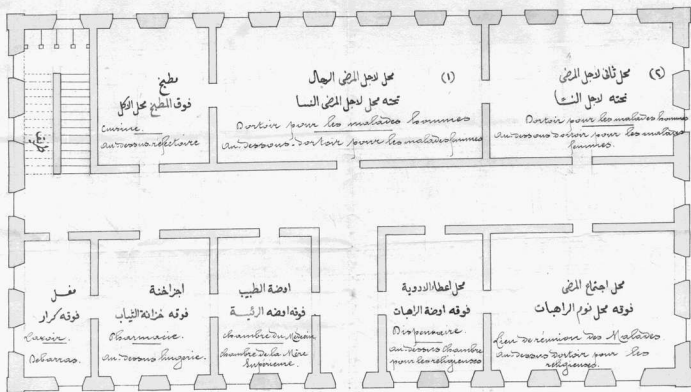 مطبخ
فوق المطبخ محل الاكل
Cuisine
au dessus réfectoire
(١) محل لاجل المرضى الرجال
تحته محل لاجل المرضى النسا
Dortoir pour les malades hommes
au dessous. dortoir pour les malades femmes
(٢) محل ثانى لاجل المرضى
تحته لاجل النسا
Dortoir pour les malades hommes
au dessous dortoir pour les malades
femmes.
مغسل
فوقه كرار
Lavoir.
Débarras.
اجزاخنة
فوقه خزانة الثياب
Pharmacie.
au dessus lingerie.
اوضة الطبيب
فوقه اوضه الرئيسة
chambre du Médecin
chambre de la Mère
Supérieure.
محل اعطا الادوية
فوقه اوضة الراهبات
Dispensaire.
au dessus chambre
pour les religieuses
محل اجتماع المرضى
فوقه محل نوم الراهبات
Lieu de réunion des Malades
au dessus dortoir pour les
religieuses.